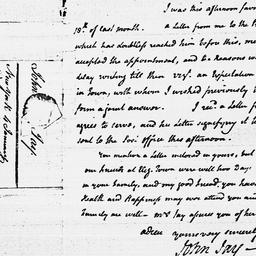 I was this afternoon favo
18th of last month. a Letter from me to the P
which has doubtless reached him before this, me
accepted the appointment, and the reasons w
delay writing till then
in Town, with whom I wished previously t
form a final answer. I recd. a Letter f
agrees to serve, and his Letter signifying it t
sent to the Secy. office this afternoon.
You mention a Letter inclosed in yours, but
our friends at Eliz. Town were well two Days
in your family, and my good friend, you have
Health and Happiness may ever attend you an
family are well — Mrs Jay assures you of her
adieu yours very sincerely
John Jay —
John Jay.